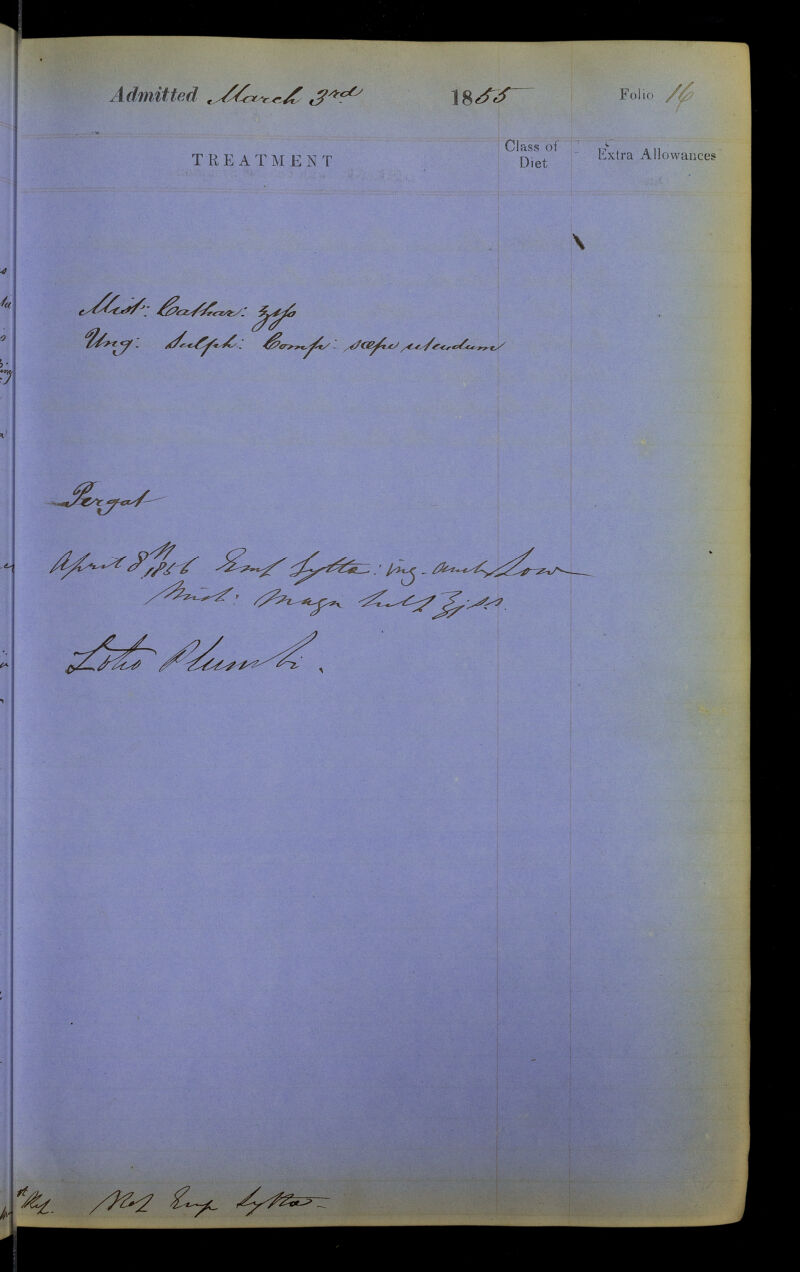 Admitted March 3rd 1855 Folio 16
TREATMENT
Class of Diet
Extra Allowances
Mist: Cathar: ʒifs
Ung: Sulph: Comp: sæpe utendum
Pergat
April 8th 1856 Emp Lytta:
Mist: Magn Sulf ℥jss.
Lotio Plumbi.
Rep. Rep Emp Lytta